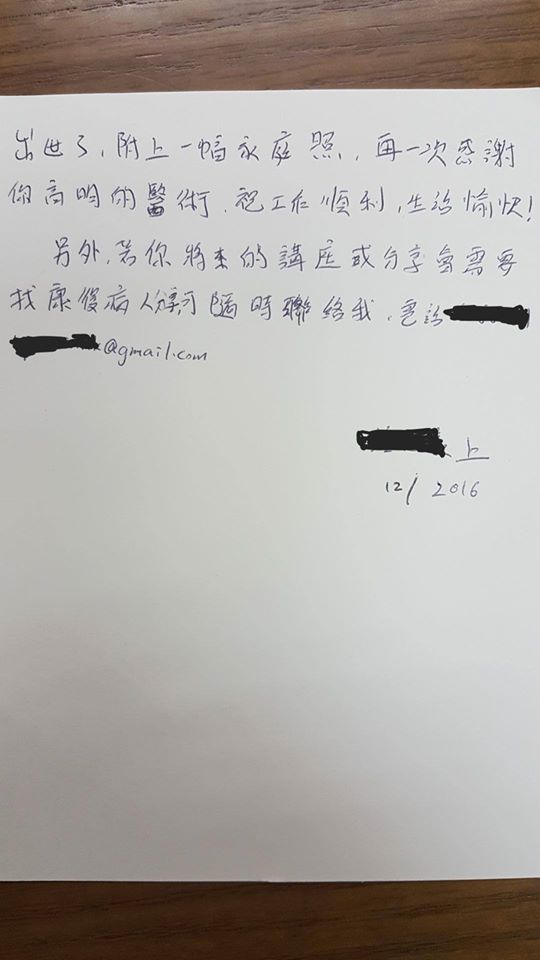 出世了, 附上一幅家庭照, 再一次感謝
你高明的醫術. 祝工作順利, 生活愉快!
另外, 若你將來的講座或分享會需要
找康復病人分享可隨時聯絡我, 電話
@gmail.com
上
12/ 2016